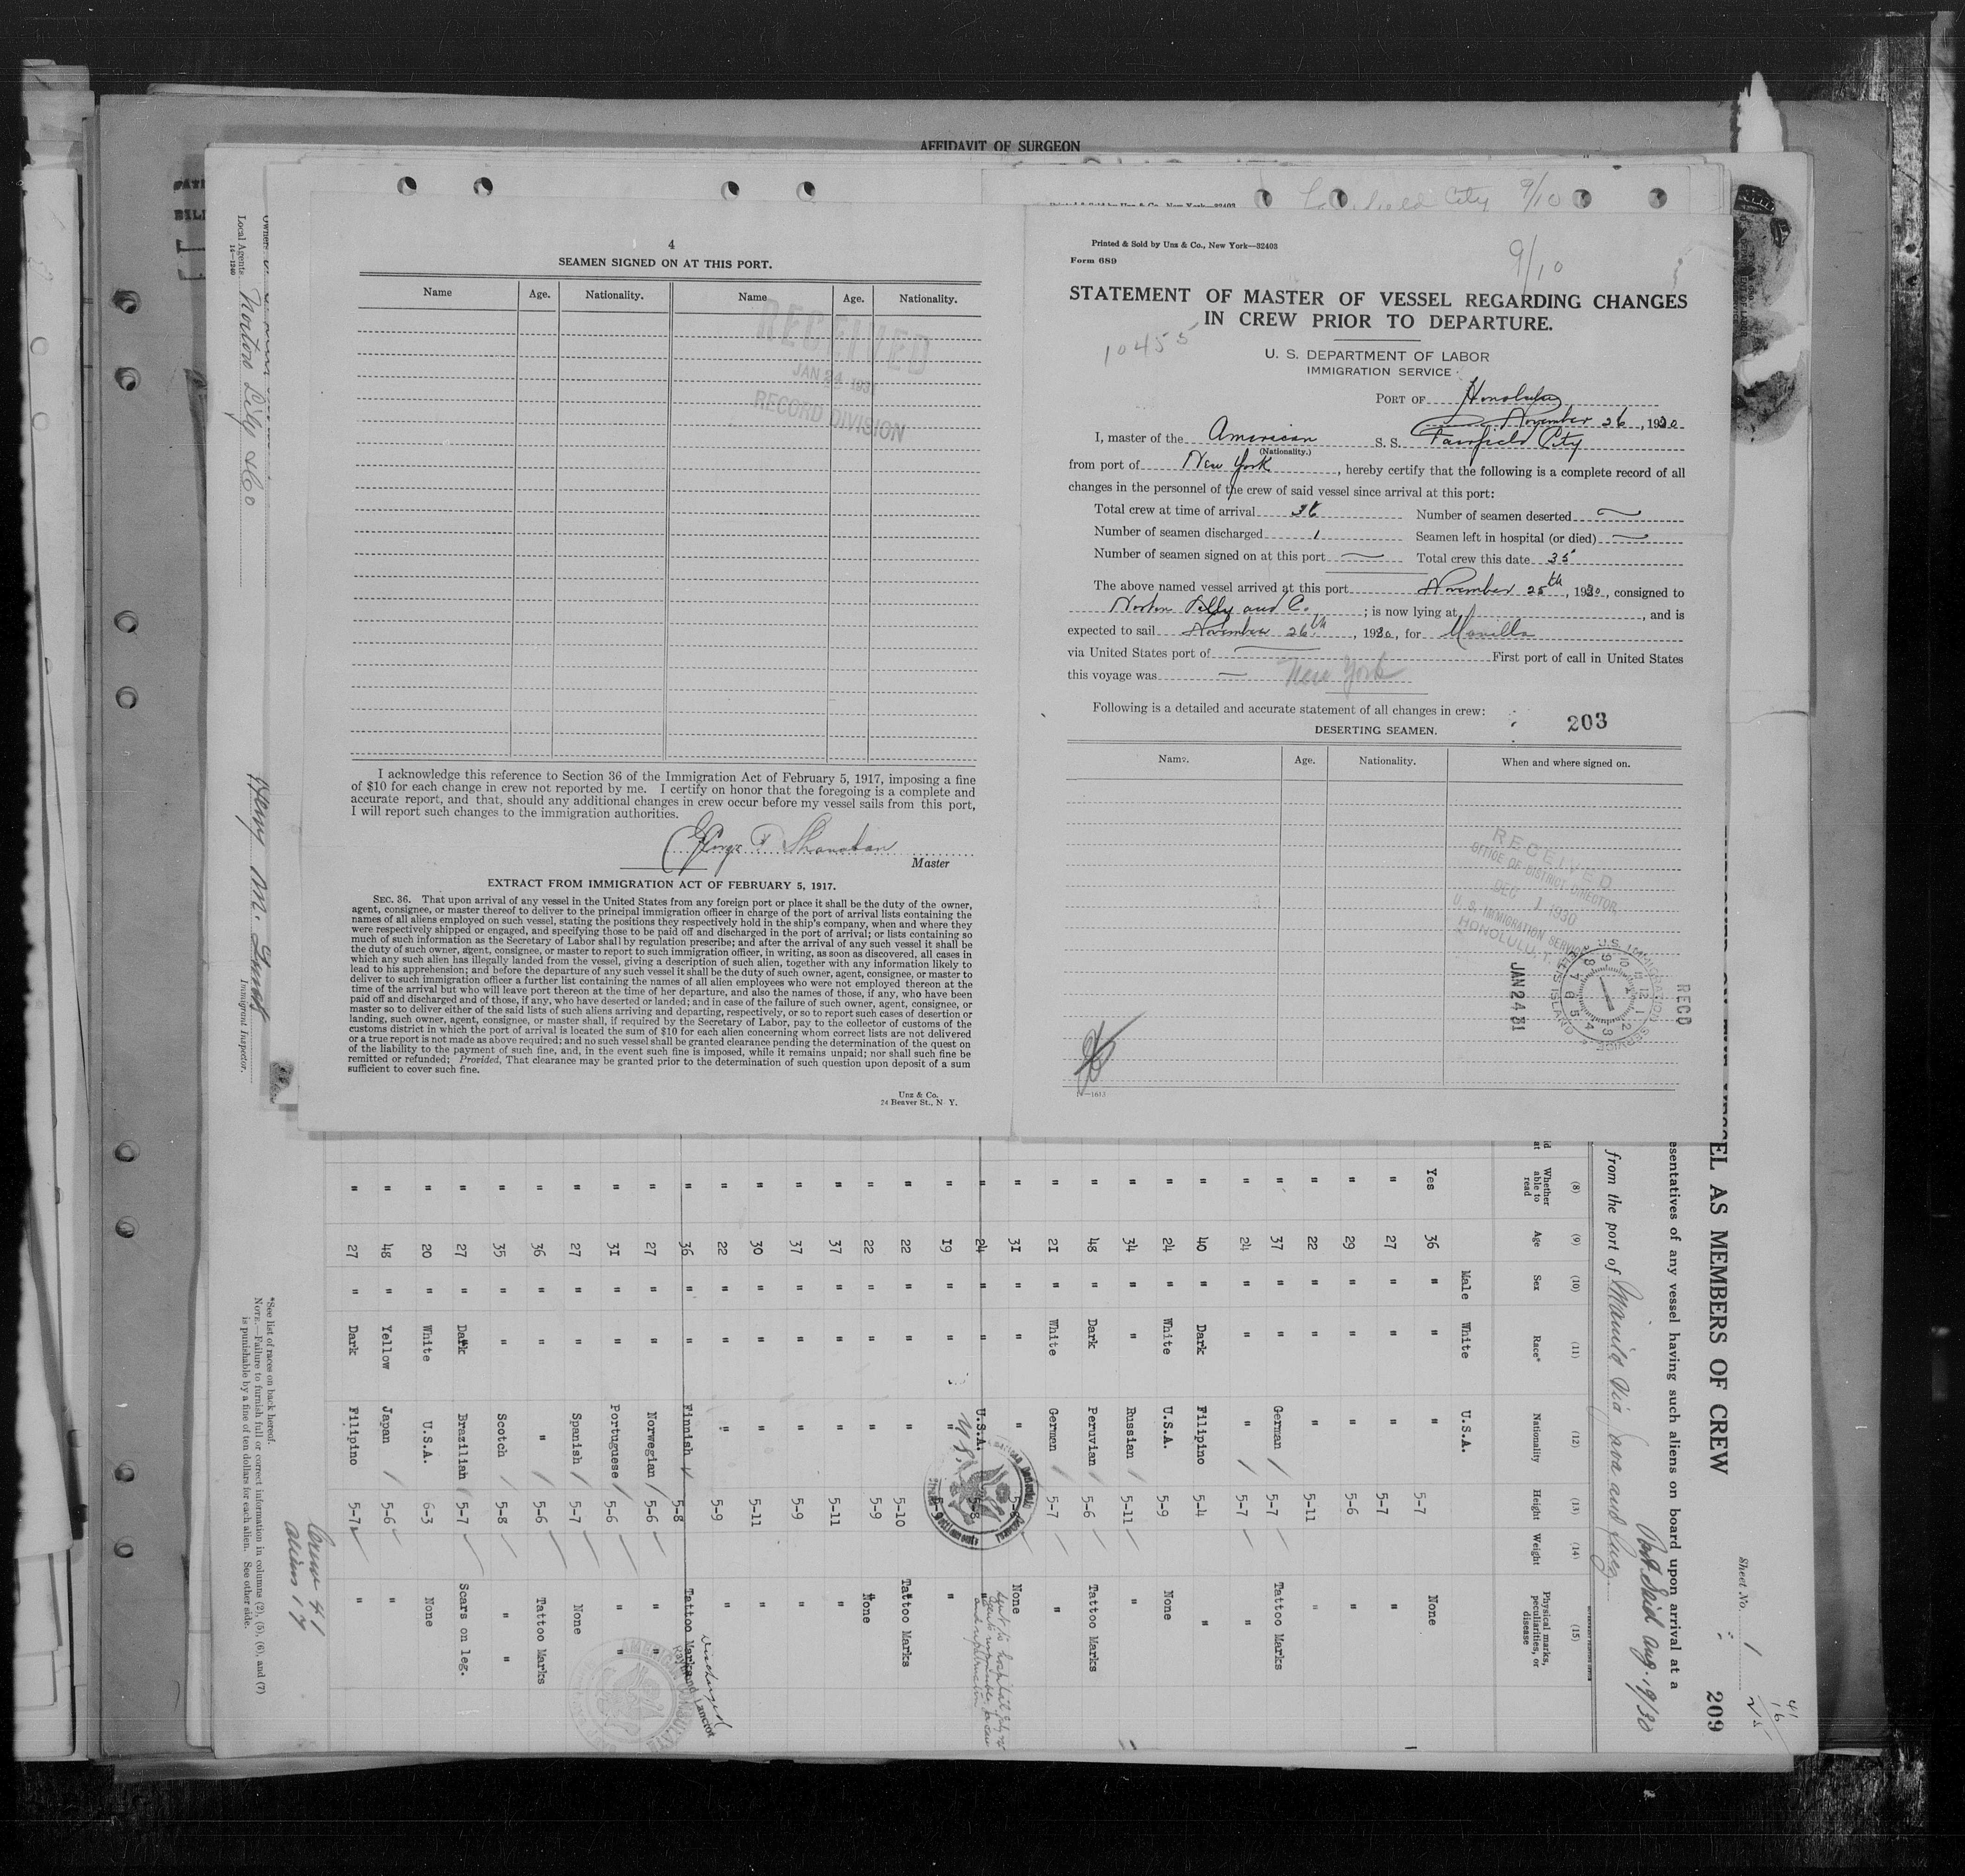 AFFIDAVIT OF SURGEON
4
SEAMEN SIGNED ON AT THIS PORT.
Name Age. Nationality. Name Age. Nationality.
RECEIVED
JAN 24 1931
RECORD DIVISION
I acknowledge this reference to Section 36 of the Immigration Act of February 5, 1917, imposing a fine
of $10 for each change in crew not reported by me. I certify on honor that the foregoing is a complete and
accurate report, and that, should any additional changes in crew occur before my vessel sails from this port,
I will report such changes to the immigration authorities.
Master
EXTRACT FROM IMMIGRATION ACT OF FEBRUARY 5, 1917.
SEC. 36. That upon arrival of any vessel in the United States from any foreign port or place it shall be the duty of the owner,
agent, consignee, or master thereof to deliver to the principal immigration officer in charge of the port of arrival lists containing the
names of all aliens employed on such vessel, stating the positions they respectively hold in the ship's company, when and where they
were respectively shipped or engaged, and specifying those to be paid off and discharged in the port of arrival; or lists containing so
much of such information as the Secretary of Labor shall by regulation prescribe; and after the arrival of any such vessel it shall be
the duty of such owner, agent, consignee, or master to report to such immigration officer, in writing, as soon as discovered, all cases in
which any such alien has illegally landed from the vessel, giving a description of such alien, together with any information likely to
lead to his apprehension; and before the departure of any such vessel it shall be the duty of such owner, agent, consignee, or master to
deliver to such immigration officer a further list containing the names of all alien employees who were not employed thereon at the
time of the arrival but who will leave port thereon at the time of her departure, and also the names of those, if any, who have been
paid off and discharged and of those, if any, who have deserted or landed; and in case of the failure of such owner, agent, consignee, or
master so to deliver either of the said lists of such aliens arriving and departing, respectively, or so to report such cases of desertion or
landing, such owner, agent, consignee, or master shall, if required by the Secretary of Labor, pay to the collector of customs of the
customs district in which the port of arrival is located the sum of $10 for each alien concerning whom correct lists are not delivered
or a true report is not made as above required; and no such vessel shall be granted clearance pending the determination of the quest on
of the liability to the payment of such fine, and, in the event such fine is imposed, while it remains unpaid; nor shall such fine be
remitted or refunded; Provided, That clearance may be granted prior to the determination of such question upon deposit of a sum
sufficient to cover such fine.
Unz & Co.
24 Beaver St., N Y.
City 9/10
Printed & Sold by Unz & Co., New York—32403
Form 689
9/10
STATEMENT OF MASTER OF VESSEL REGARDING CHANGES
IN CREW PRIOR TO DEPARTURE.
10455
U. S. DEPARTMENT OF LABOR
IMMIGRATION SERVICE
PORT OF Honolulu
November 26, 1930
I, master of the American S. S. Fairfield City
(Nationality.)
from port of New York, hereby certify that the following is a complete record of all
changes in the personnel of the crew of said vessel since arrival at this port:
Total crew at time of arrival 36 Number of seamen deserted
Number of seamen discharged 1 Seamen left in hospital (or died)
Number of seamen signed on at this port Total crew this date 35
The above named vessel arrived at this port November 25th, 1930, consigned to
; is now lying at , and is
expected to sail November 26th, 1930, for Manilla
via United States port of First port of call in United States
this voyage was New York
Following is a detailed and accurate statement of all changes in crew:
203
DESERTING SEAMEN.
Name. Age. Nationality. When and where signed on.
RECEIVED
OFFICE OF DISTRICT DIRECTOR,
DEC 1 1930
U. S. IMMIGRATION SERVICE
HONOLULU, T. H.
JAN 24 31
REC'D
U.S. IMMIGRATION SERVICE
ELLIS ISLAND
Local Agents
14—1240
Henry M.
Immigrant Inspector.
EL AS MEMBERS OF CREW
Sheet No. 1
209
esentatives of any vessel having such aliens on board upon arrival at a
Port Said Aug. 9/30
from the port of Manila via Java and Suez
(8) (9) (10) (11) (12) (13) (14) (15)
Whether able to read Age Sex Race* Nationality Height Weight Physical marks, peculiarities, or disease
Male White U.S.A.
Yes 36 " " " 5-7 None
" 27 " " " 5-7 "
" 29 " " " 5-6 "
" 22 " " " 5-11 "
" 37 " " German 5-7 Tattoo Marks
" 24 " " " 5-7 "
" 40 " Dark Filipino 5-4 "
" 24 " White U.S.A. 5-9 None
" 34 " " Russian 5-11 "
" 48 " Dark Peruvian 5-6 Tattoo Marks
" 21 " White German 5-7 "
" 31 " " " None
" 24 " " U.S.A. 5-8 "
" 19 " " " 5-9 "
" 22 " " " 5-10 Tattoo Marks
" 22 " " " 5-9 None
" 37 " " " 5-11 "
" 37 " " " 5-9 "
" 30 " " " 5-11 "
" 22 " " " 5-9 "
" 36 " " Finnish 5-8 Tattoo Marks
Discharged
" 27 " " Norwegian 5-6 "
" 31 " " Portuguese 5-6 "
" 27 " " Spanish 5-7 None
" 36 " " " 5-6 Tattoo Marks
" 35 " " Scotch 5-8 "
" 27 " Dark Brazilian 5-7 Scars on leg.
" 20 " White U.S.A. 6-3 None
" 48 " Yellow Japan 5-6 "
" 27 " Dark Filipino 5-7 "
Crew 41
Aliens 17
*See list of races on back hereof.
NOTE.—Failure to furnish full or correct information in columns (2), (5), (6), and (7)
is punishable by a fine of ten dollars for each alien. See other side.